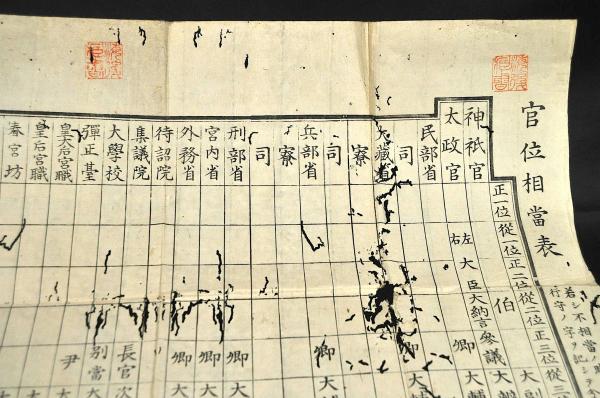 官位相當表
若シ不相當ノ時
行守ノ字ヲ記シテ
正一位從一位正二位從二位正三位從三
神祇官 伯 大副
太政官 左右大臣大納言參議 大辨
民部省 卿 大輔
司
大藏省
寮
司
兵部省 卿 大
寮
司
刑部省 卿 大
宮内省 卿 大
外務省 卿 大
待詔院
集議院 長官次
大學校 別當大
彈正臺 尹
皇太后宮職
皇后宮職
春宮坊